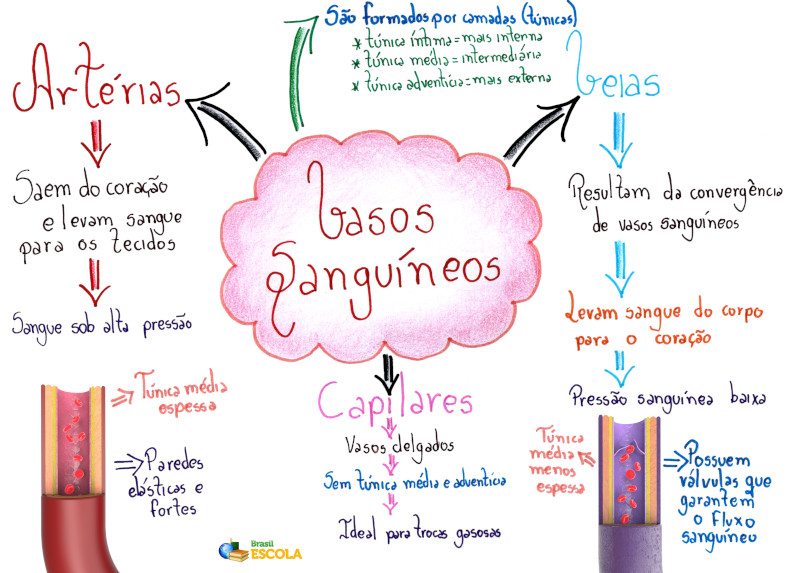 São formados por camadas (túnicas)
* túnica íntima = mais interna
* túnica média = intermediária
* túnica adventícia = mais externa
Artérias
Saem do coração
e levam sangue
para os tecidos
Sangue sob alta pressão
Túnica média
espessa
Paredes
elásticas e
fortes
Vasos
Sanguíneos
Capilares
Vasos delgados
Sem túnica média e adventícia
Ideal para trocas gasosas
Veias
Resultam da convergência
de vasos sanguíneos
Levam sangue do corpo
para o coração
Pressão sanguínea baixa
Túnica
média
menos
espessa
Possuem
válvulas que
garantem
o fluxo
sanguíneo
Brasil
ESCOLA